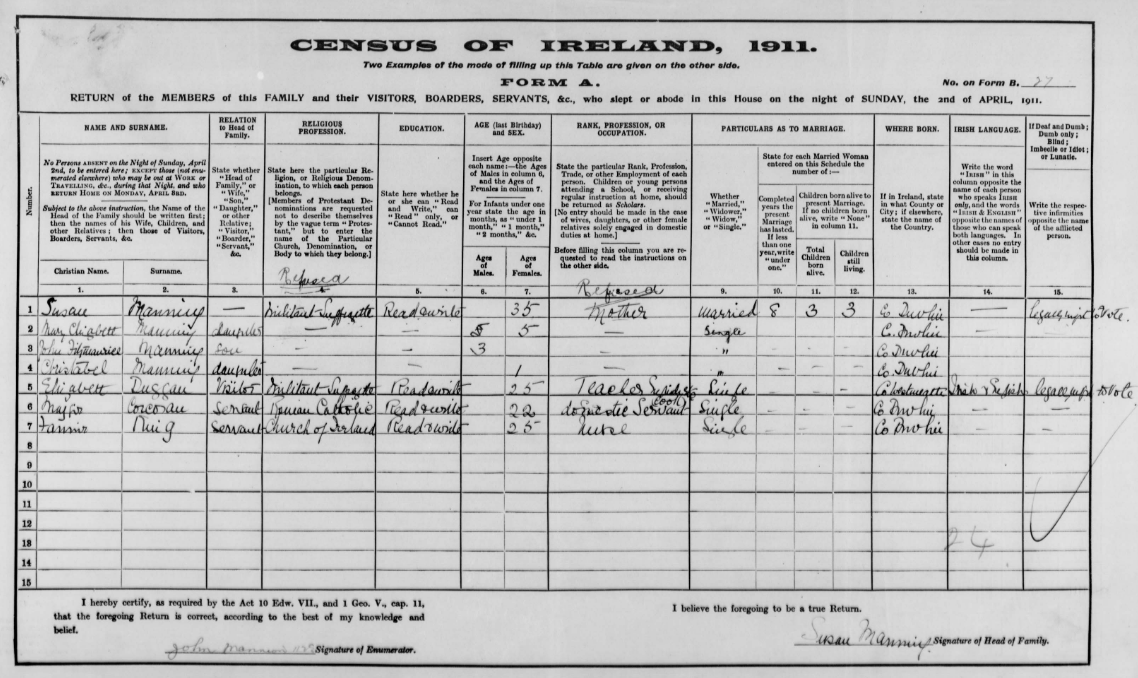 CENSUS OF IRELAND, 1911.
Two Examples of the mode of filling up this Table are given on the other side.
FORM A.
No. on Form B. 27
RETURN of the MEMBERS of this FAMILY and their VISITORS, BOARDERS, SERVANTS, &c., who slept or abode in this House on the night of SUNDAY, the 2nd of APRIL, 1911.
Number.
NAME AND SURNAME.
No Persons ABSENT on the Night of Sunday, April 2nd, to be entered here; EXCEPT those (not enumerated elsewhere) who may be out at WORK or TRAVELLING, &c., during that Night, and who RETURN HOME ON MONDAY, APRIL 3RD.
Subject to the above instruction, the Name of the Head of the Family should be written first; then the names of his Wife, Children, and other Relatives; then those of Visitors, Boarders, Servants, &c.
Christian Name.
Surname.
1.
2.
RELATION to Head of Family.
State whether "Head of Family," or "Wife," "Son," "Daughter," or other Relative; "Visitor," "Boarder," "Servant," &c.
3.
RELIGIOUS PROFESSION.
State here the particular Religion, or Religious Denomination, to which each person belongs.
[Members of Protestant Denominations are requested not to describe themselves by the vague term "Protestant," but to enter the name of the Particular Church, Denomination, or Body to which they belong.]
Refused
4.
EDUCATION.
State here whether he or she can "Read and Write," can "Read" only, or "Cannot Read."
5.
AGE (last Birthday) and SEX.
Insert Age opposite each name:—the Ages of Males in column 6, and the Ages of Females in column 7.
For Infants under one year state the age in months, as "under 1 month," "1 month," "2 months," &c.
Ages of Males.
Ages of Females.
6.
7.
RANK, PROFESSION, OR OCCUPATION.
State the particular Rank, Profession, Trade, or other Employment of each person. Children or young persons attending a School, or receiving regular instruction at home, should be returned as Scholars.
[No entry should be made in the case of wives, daughters, or other female relatives solely engaged in domestic duties at home.]
Before filling this column you are requested to read the instructions on the other side.
Refused
8.
PARTICULARS AS TO MARRIAGE.
Whether "Married," "Widower," "Widow," or "Single."
State for each Married Woman entered on this Schedule the number of:—
Completed years the present Marriage has lasted. If less than one year, write "under one."
Children born alive to present Marriage. If no children born alive, write "None" in column 11.
Total Children born alive.
Children still living.
9.
10.
11.
12.
WHERE BORN.
If in Ireland, state in what County or City; if elsewhere, state the name of the Country.
13.
IRISH LANGUAGE.
Write the word "IRISH" in this column opposite the name of each person who speaks IRISH only, and the words "IRISH & ENGLISH" opposite the names of those who can speak both languages. In other cases no entry should be made in this column.
14.
If Deaf and Dumb; Dumb only; Blind; Imbecile or Idiot; or Lunatic.
Write the respective infirmities opposite the name of the afflicted person.
15.
1 Susan Manning — Militant Suffragette Read & write 35 Mother Married 8 3 3 Co Dublin — to Vote.
2 Mary Elizabeth Manning daughter — — 5 — Single — — — Co Dublin — —
3 John Fitzmaurice Manning son — — 3 — " — — — Co Dublin — —
4 Christabel Manning daughter — — 1 — " — — — Co Dublin
5 Elizabeth Duggan Visitor Militant Suffragette Read & write 25 Teacher Single — — Irish & English to Vote
6 Corcoran Servant Roman Catholic Read & write 22 Cook domestic Servant Single — — — Co Dublin — —
7 Servant Church of Ireland Read & write 25 nurse Single — — — Co Dublin — —
8
9
10
11
12
13
14
15
24
I hereby certify, as required by the Act 10 Edw. VII., and 1 Geo. V., cap. 11, that the foregoing Return is correct, according to the best of my knowledge and belief.
John Signature of Enumerator.
I believe the foregoing to be a true Return.
Susan Manning Signature of Head of Family.